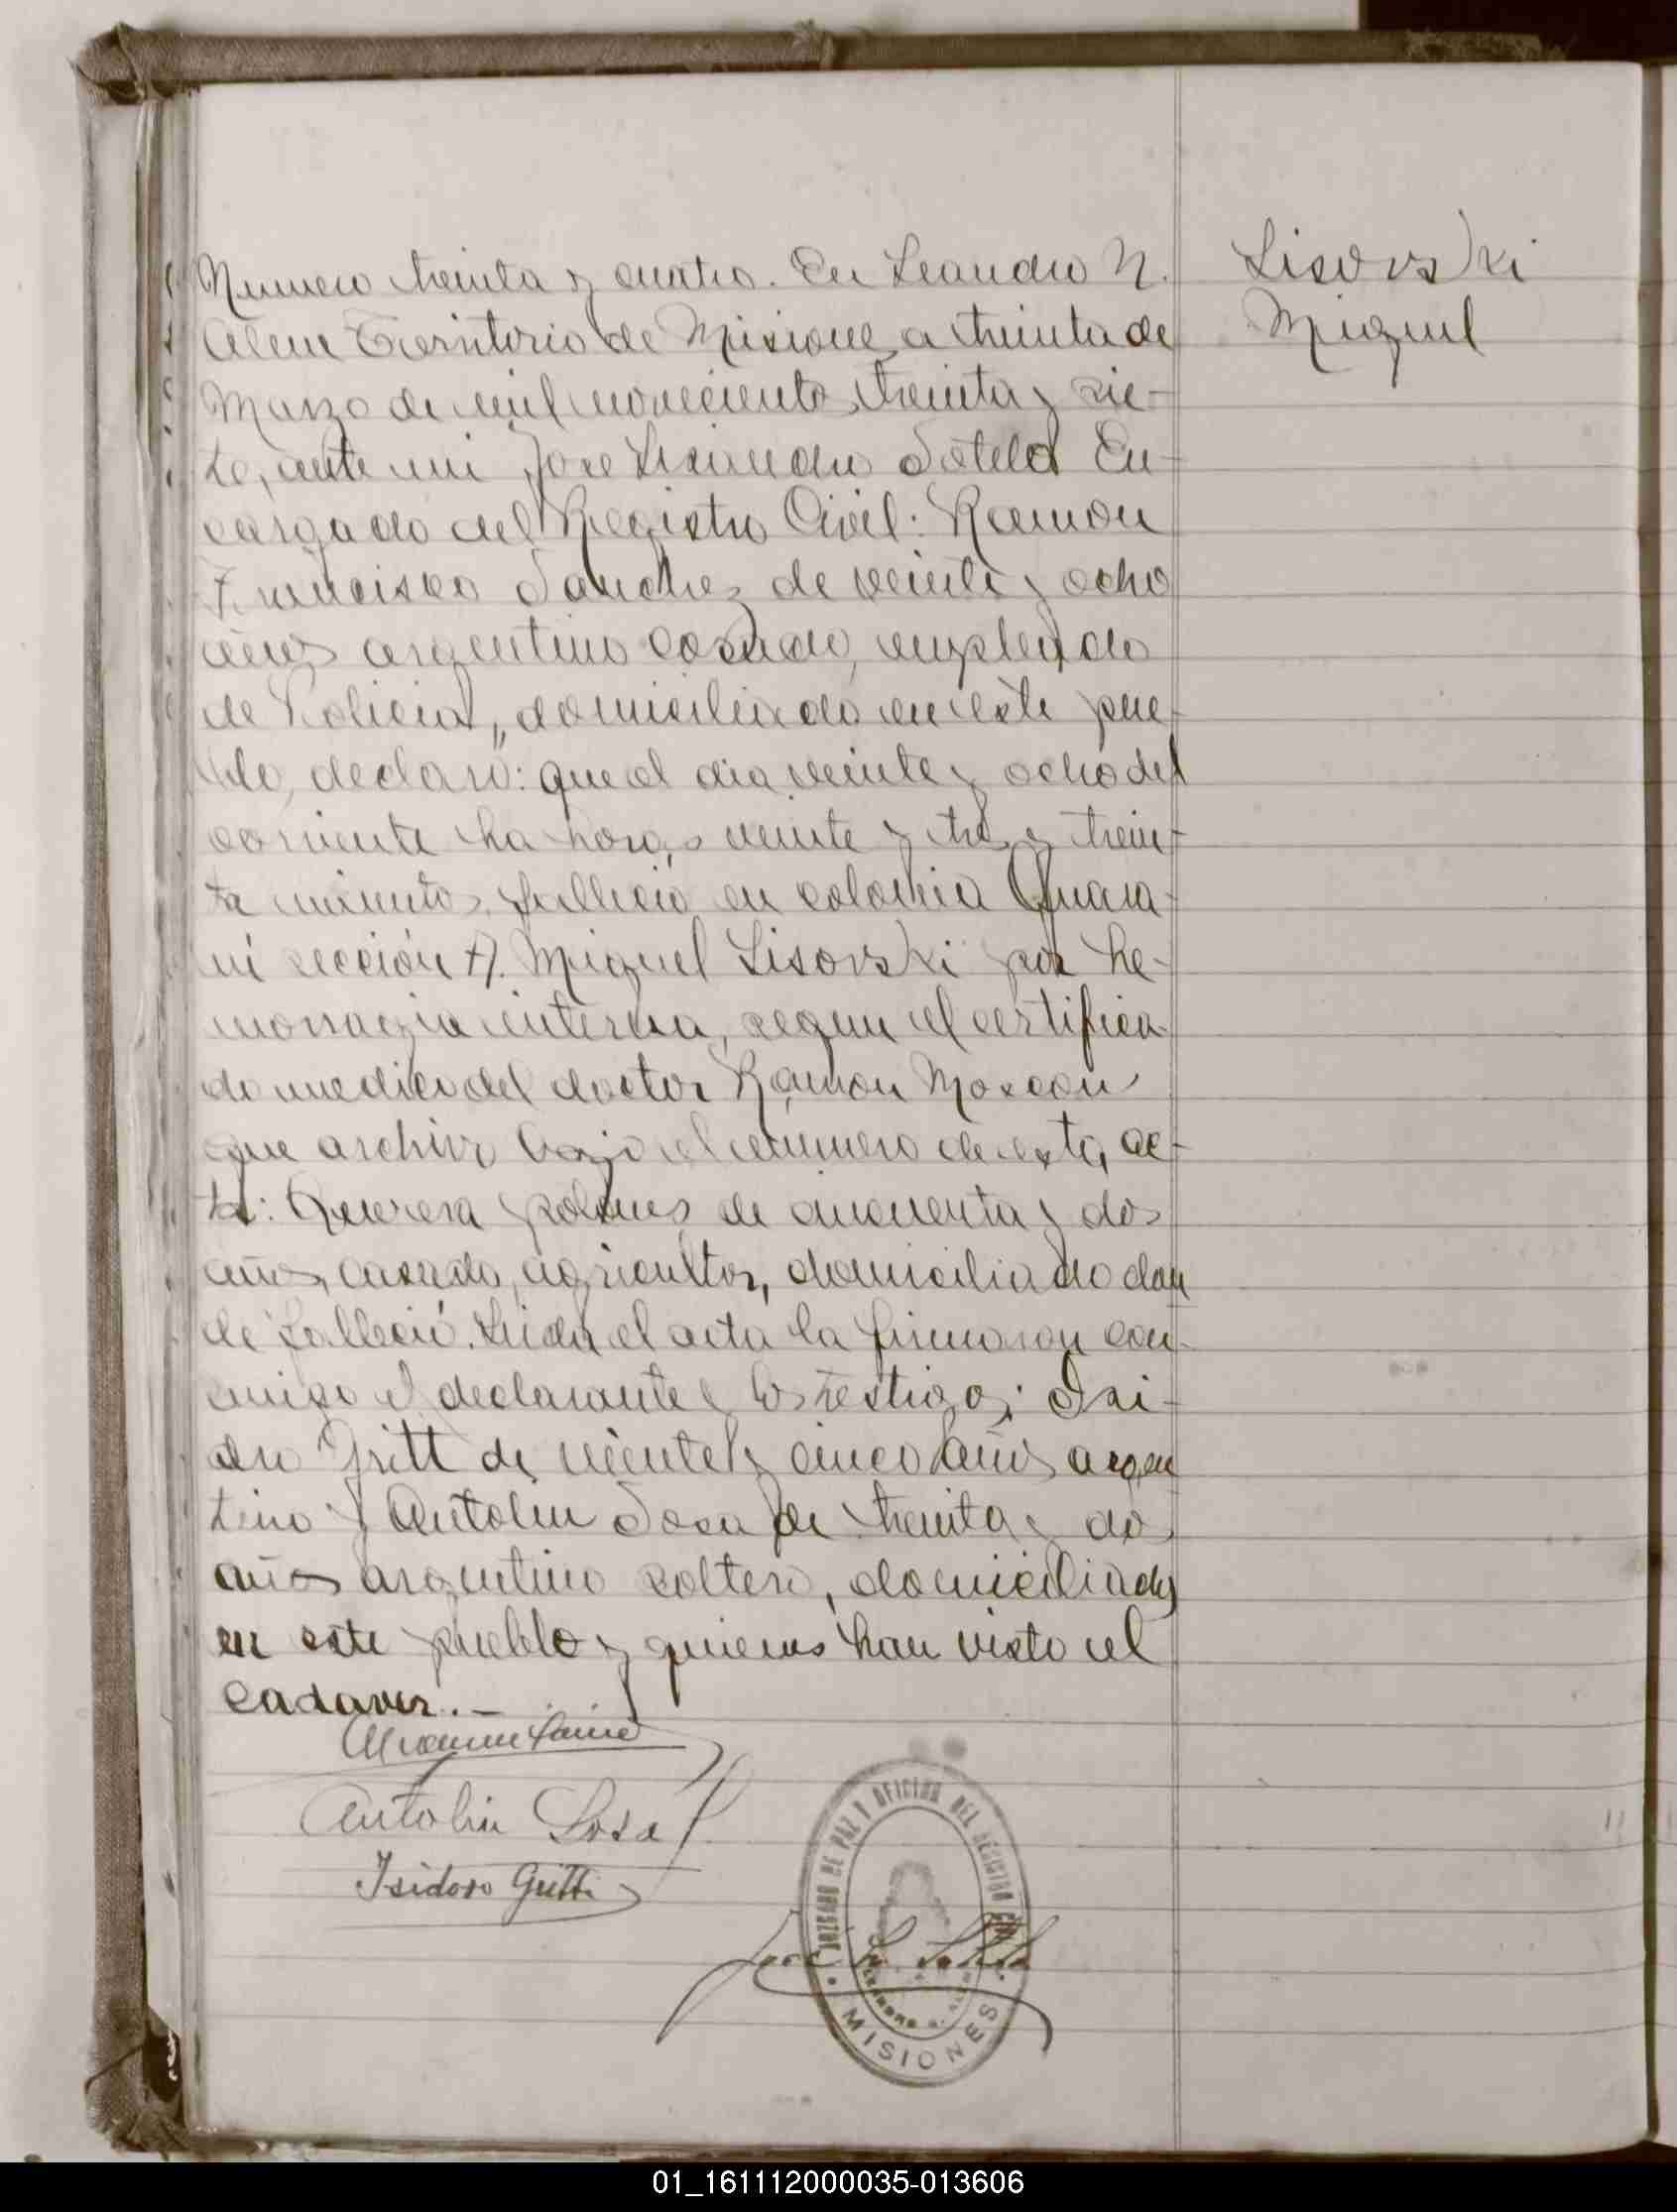 Numero treinta y cuatro. En Leandro N.
Alem Territorio de Misiones a treinta de
Marzo de mil novecientos treinta y sie-
te, ante mi Jose Lisandro Sotelo En-
cargado del Registro Civil: Ramon
Francisco Sanchez de veinte y ocho
años argentino casado, empleado
de Policia, domiciliado en este pue-
blo, declaro: que el dia veinte y ocho del
corriente ha horas veinte y tres y trein-
ta minutos fallecio en colonia Guara-
ni sección A. Miguel Lisovski por he-
morragia interna, segun el certifica-
do medico del doctor Ramon
que archivo bajo el numero de esta ac-
ta: Que era polones de cincuenta y dos
años, casado, agricultor, domiciliado don
de falleció. Leida el acta la firmaron con-
migo el declarante y los testigos: Isi-
dro Gritt de veinte y cinco años argen
tino y Antolin Sosa de treinta y dos
años argentino soltero, domiciliados
en este pueblo y quienes han visto el
cadaver. –
Antolin Sosa
Isidoro Gritti
Jose L. Sotelo
JUZGADO DE PAZ Y OFICINA DEL REGISTRO CIVIL
LEANDRO N. ALEM
MISIONES
Lisovski
Miguel
01_161112000035-013606